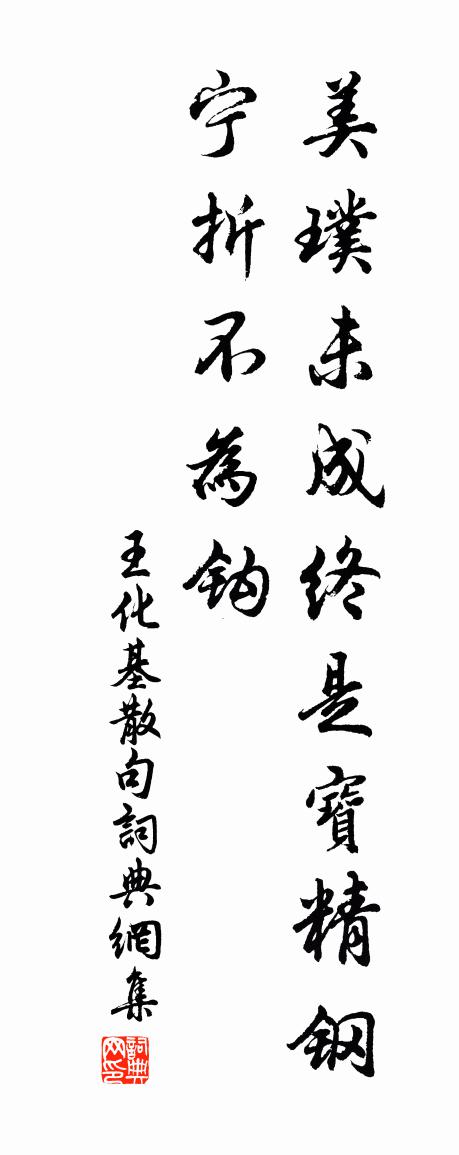 美璞未成终是寶精钢
宁折不為钩
王化基散句詞典網集
詞典网印